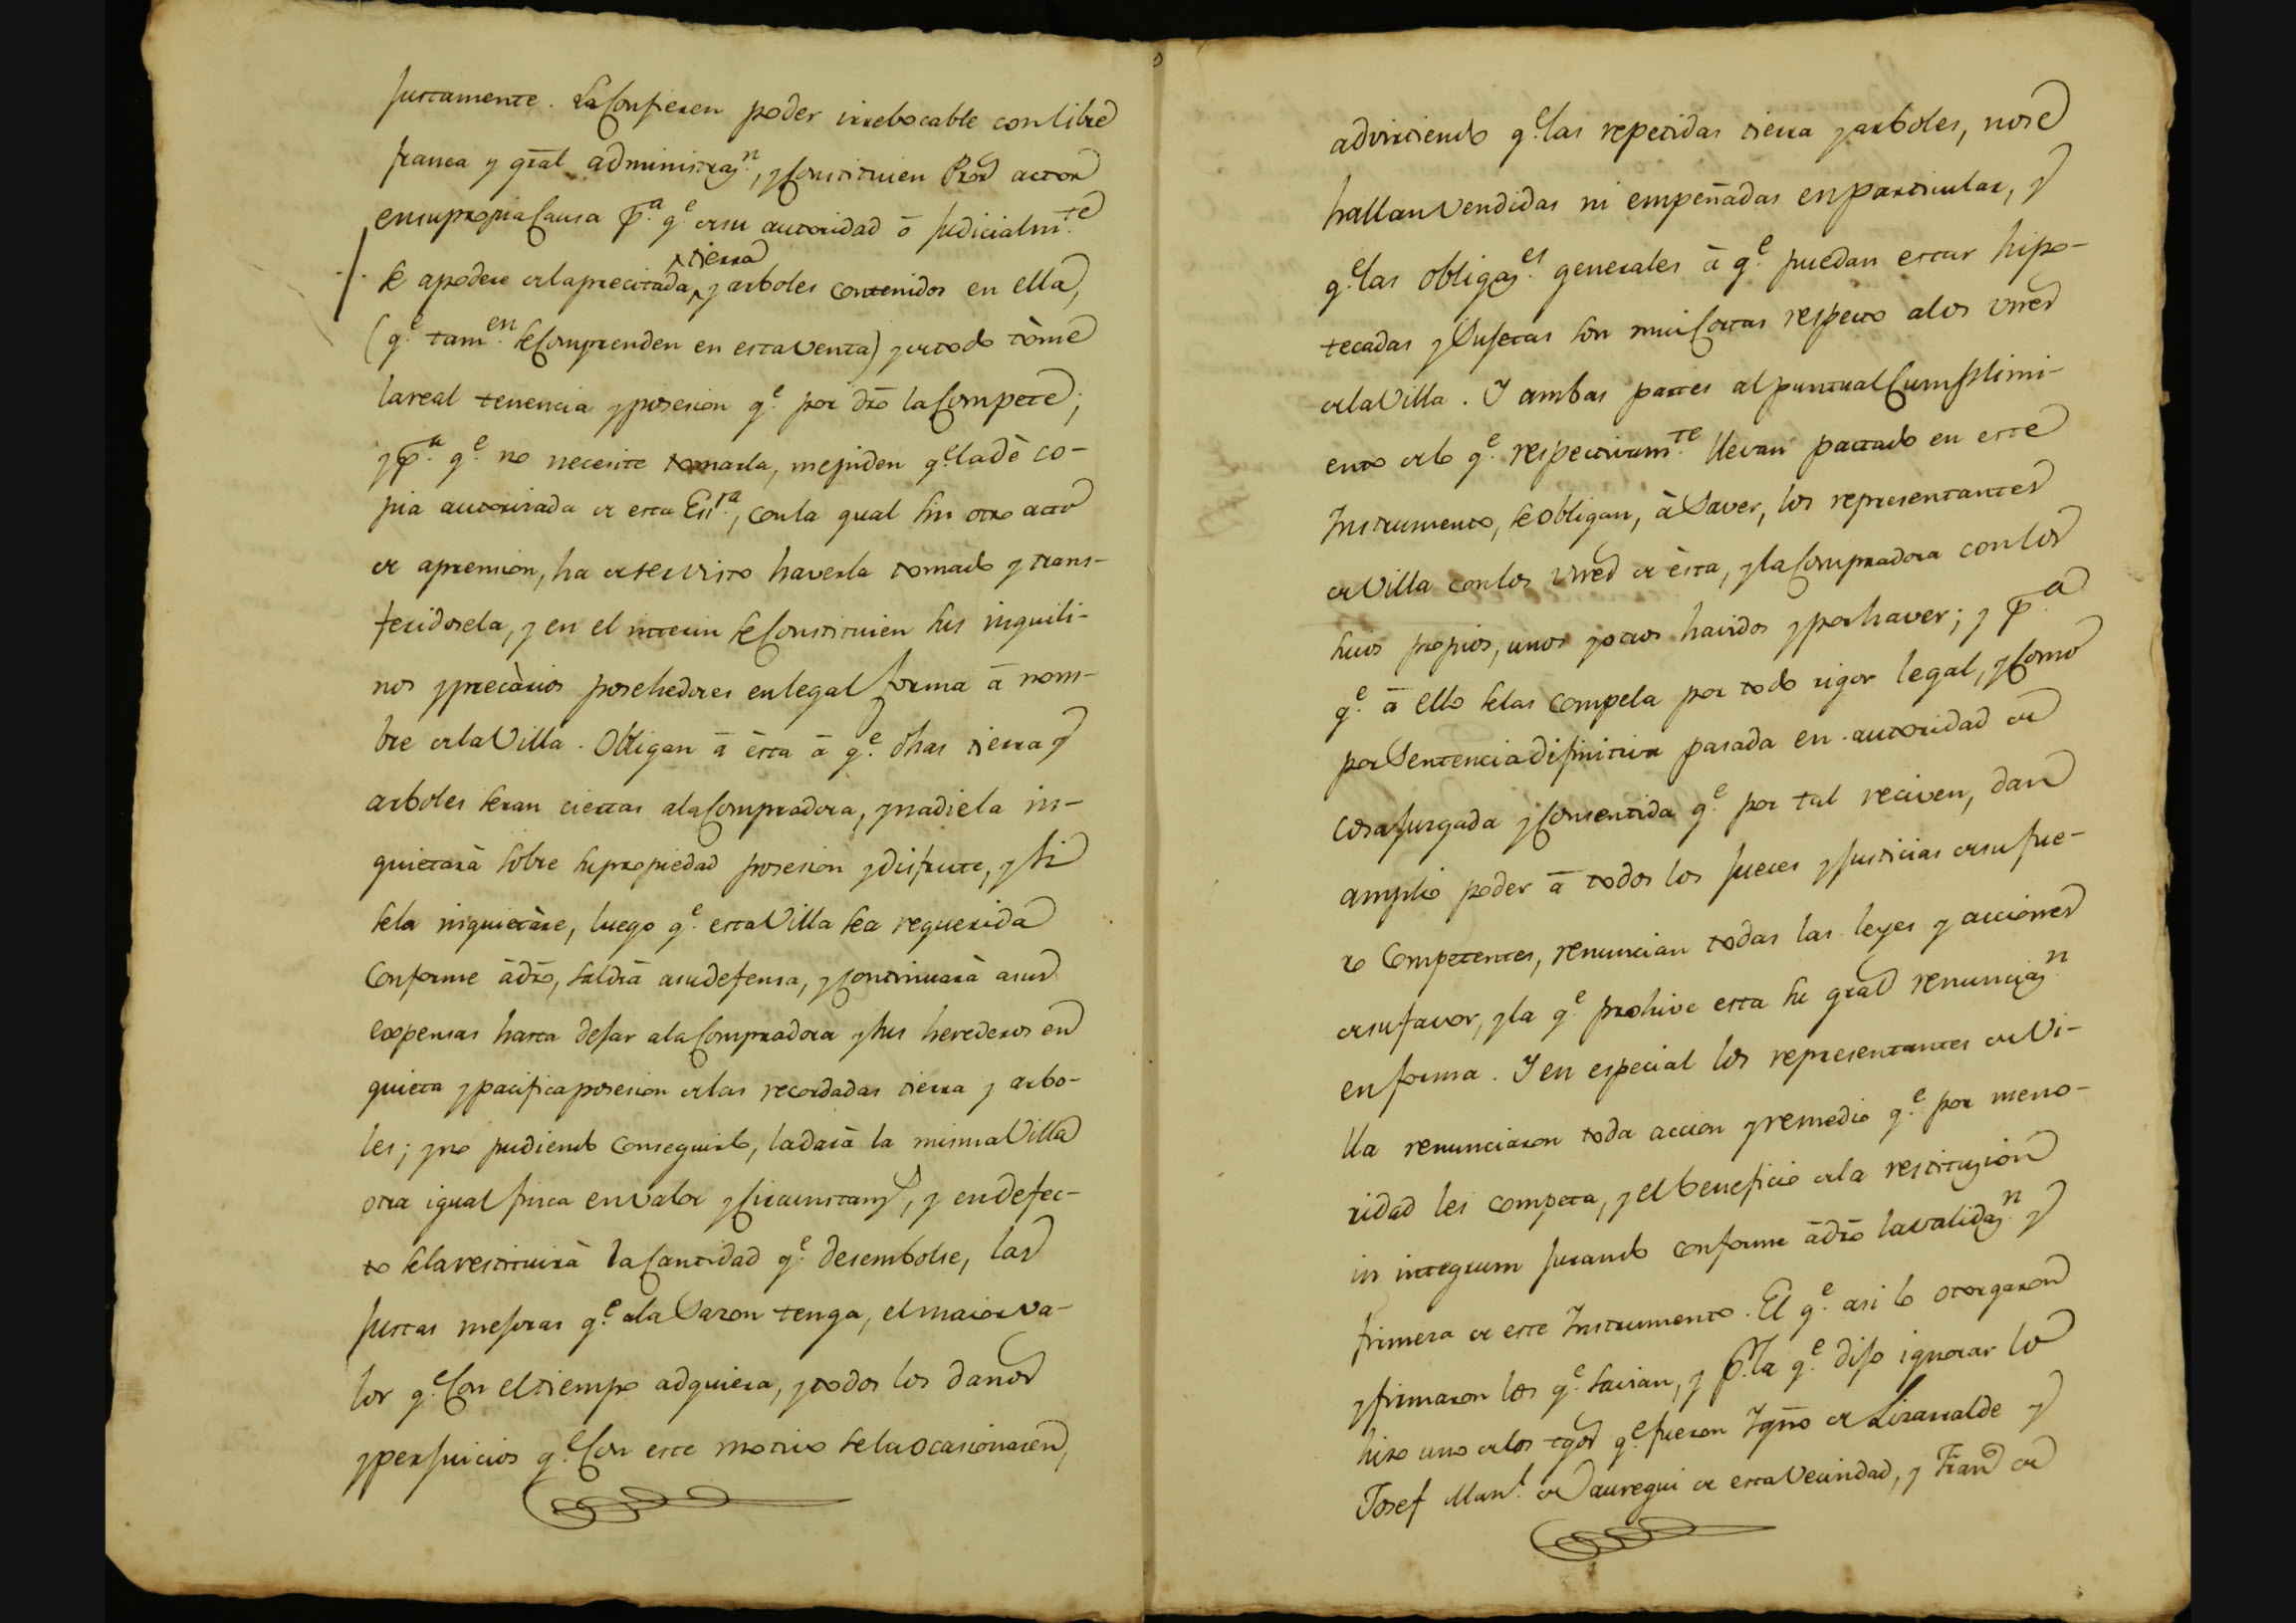 Justamente. La Confieren poder irrebocable con libre
franca y gral administraz.n, y Constituien Pror actor
en su propia Causa p.a q.e de su autoridad ò Judicialm.te
se apodere de la precitada tierra y arboles contenidos en ella,
(q.e tam.en se Comprenden en esta venta) y de todo tòme
la real tenencia y posesion q.e por dro la Compete;
y p.a q.e no necesite tomarla, me piden q.e la dè co-
pia autorizada de esta Esr.a, con la qual sin otro acto
de aprension, ha de ser visto haverla tomado y trans-
feridosela, y en el interin se Constituien sus inquili-
nos y precàrios posehedores en legal forma à nom-
bre de la Villa. Obligan à èsta à q.e dhas tierra y
arboles seran ciertas a la Compradora, y nadie la in-
quietarà sobre su propiedad posesion y disfrute, y si
se la inquietàre, luego q.e esta Villa sea requerida
Conforme à dro, saldrà a su defensa, y Continuarà a sus
expensas hasta dejar a la Compradora y sus herederos en
quieta y pacifica posesion de las recordadas tierra y arbo-
les; y no pudiendo Conseguirlo, la darà la misma Villa
otra igual finca en valor y Circunstanz.s, y en defec-
to se la restituirà la Cantidad q.e desembolse, las
Justas mejoras q.e a la Sazon tenga, el maior va-
lor q.e Con el tiempo adquiera, y todos los daños
y perjuicios q.e Con este motivo se la ocasionaren,
advirtiendo q.e las repetidas tierra y arboles, no se
hallan vendidas ni empeñadas en particular, y
q.e las obligaz.es generales à q.e puedan estar hipo-
tecadas y Sujetas son mui Cortas respecto a los vnes
de la Villa. Y ambas partes al puntual Cumplimi-
ento de lo q.e respectivam.te llevan pactado en este
Instrumento, se obligan, à Saver, los representantes
de Villa con los vnes de èsta, y la Compradora con los
suios propios, unos y otros havidos y por haver; y p.a
q.e à ello se las Compela por todo rigor legal, y Como
por Sentencia difinitiva pasada en autoridad de
cosa Juzgada y Consentida q.e por tal reciven, dan
amplio poder à todos los Jueces y Justicias de su fue-
ro Competentes, renuncian todas las leyes y acciones
de su favor, y la q.e prohive esta su gral renunciaz.n
en forma. Y en especial los representantes de Vi-
lla renunciaron toda accion y remedio q.e por meno-
ridad les competa, y el beneficio de la restituzion
in integrum Jurando conforme à dro la validaz.n y
firmeza de este Instrumento. El q.e asi lo otorgaron
y firmaron los q.e savian, y p.r la q.e dijo ignorar lo
hizo uno de los tgos q.e fueron Igño de Lizarralde y
Josef Man.l de Jauregui de esta Vecindad, y Fran.co de